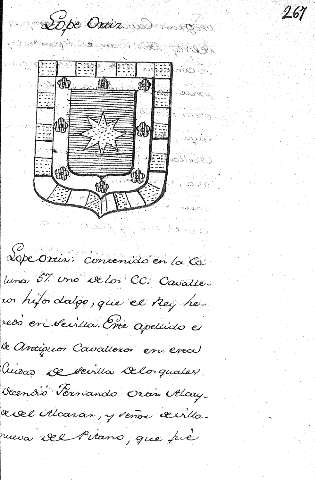 267
Lope Ortiz
Lope Ortiz: contenido en la Co
luna 57. uno de los CC. Cavalle-
ros hijosdalgo, que el Rey he-
redó en Sevilla. Este apellido es
de Antiguos Cavalleros en esta
Ciudad de Sevilla de los quales
decendió Fernando Ortiz Alcay-
de del Alcazar, y Señor de villa-
nueva del Pitano, que fué